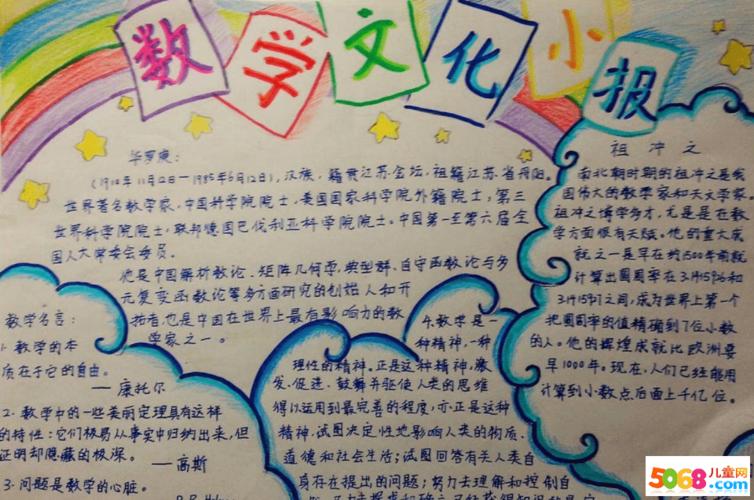 数学文化小报
华罗庚:
(1910年11月12日—1985年6月12日),汉族,籍贯江苏金坛,祖籍江苏省丹阳。
世界著名数学家,中国科学院院士,美国国家科学院外籍院士,第三
世界科学院院士,联邦德国巴伐利亚科学院院士。中国第一至第六届全
国人大常委会委员。
他是中国解析数论、矩阵几何学,典型群、自守函数论与多
元复变函数论等多方面研究的创始人和开
拓者也是中国在世界上最有影响力的数
学家之一。
祖冲之
南北朝时期的祖冲之是我
国伟大的数学家和天文学家
祖冲之博学多才,尤是是在数
学方面很有天赋。他的重大成
就之一是早在约1500年前就
计算出圆周率在3.1415926和
3.1415927之间,成为世界上第一个
把圆周率的值精确到7位小数
的人。他的辉煌成就比欧洲要
早1000年。现在,人们已经能用
计算到小数点后面上千亿位。
数学名言:
1.数学的本
质在于它的自由。
——康托尔
2.数学中的一些美丽定理具有这样
的特性:它们极易从事实中归纳出来,但
证明却隐藏的极深。
——高斯
3.问题是数学的心脏。
4.数学是一
种精神,一种
理性的精神。正是这种精神,激
发、促进、鼓舞并驱使人类的思维
得以运用到最完善的程度,亦正是这种
精神,试图决定性地影响人类的物质、
道德和社会生活;试图回答有关人类自
身存在提出的问题;努力去理解和控制自
5068儿童网
www.5068.com